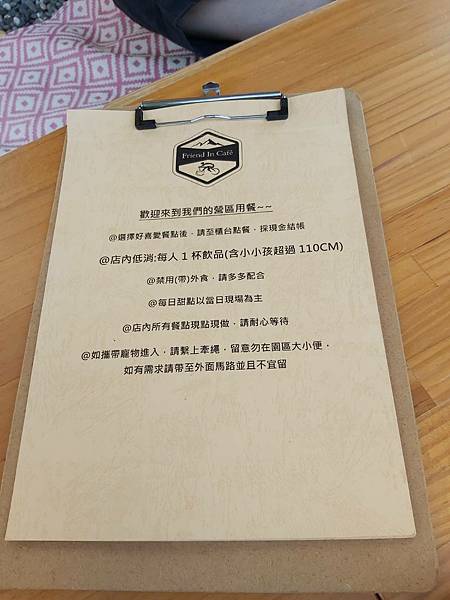 Friend In Café
歡迎來到我們的營區用餐~~
@選擇好喜愛餐點後，請至櫃台點餐，採現金結帳
@店內低消:每人 1 杯飲品(含小小孩超過 110CM)
@禁用(帶)外食，請多多配合
@每日甜點以當日現場為主
@店內所有餐點現點現做，請耐心等待
@如攜帶寵物進入，請繫上牽繩，留意勿在園區大小便，
如有需求請帶至外面馬路並且不宜留